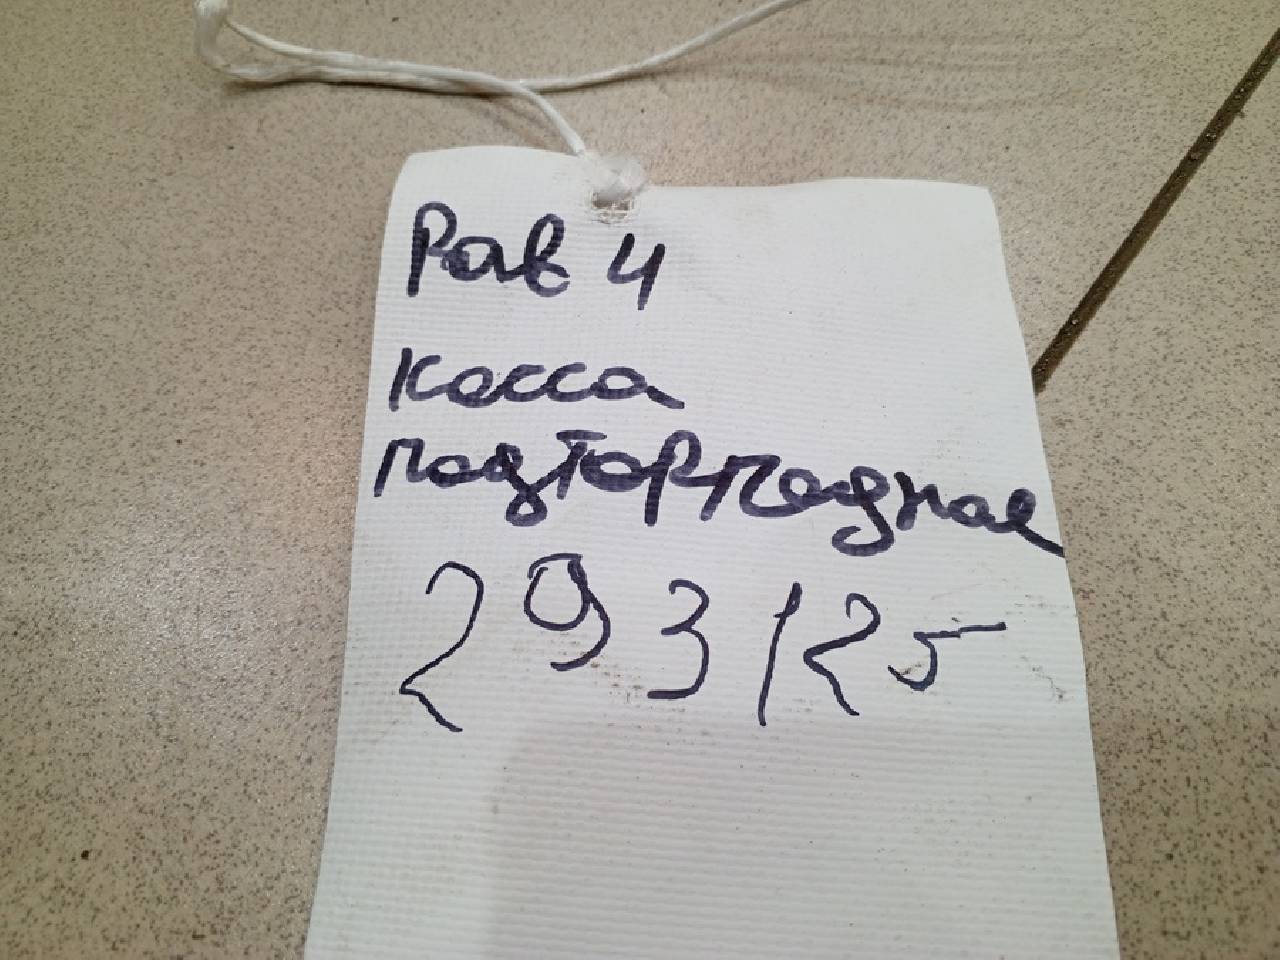 Рав 4
Касса
подторпедная
293125